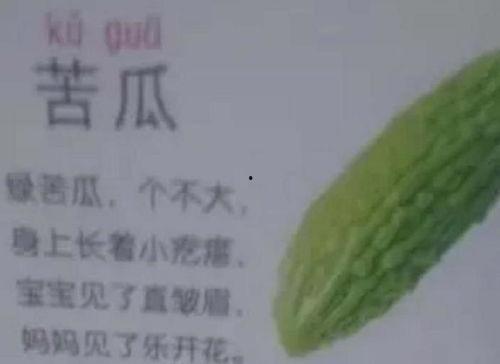 kǔ guā
苦瓜
绿苦瓜，个不大，
身上长着小疙瘩，
宝宝见了直皱眉，
妈妈见了乐开花。